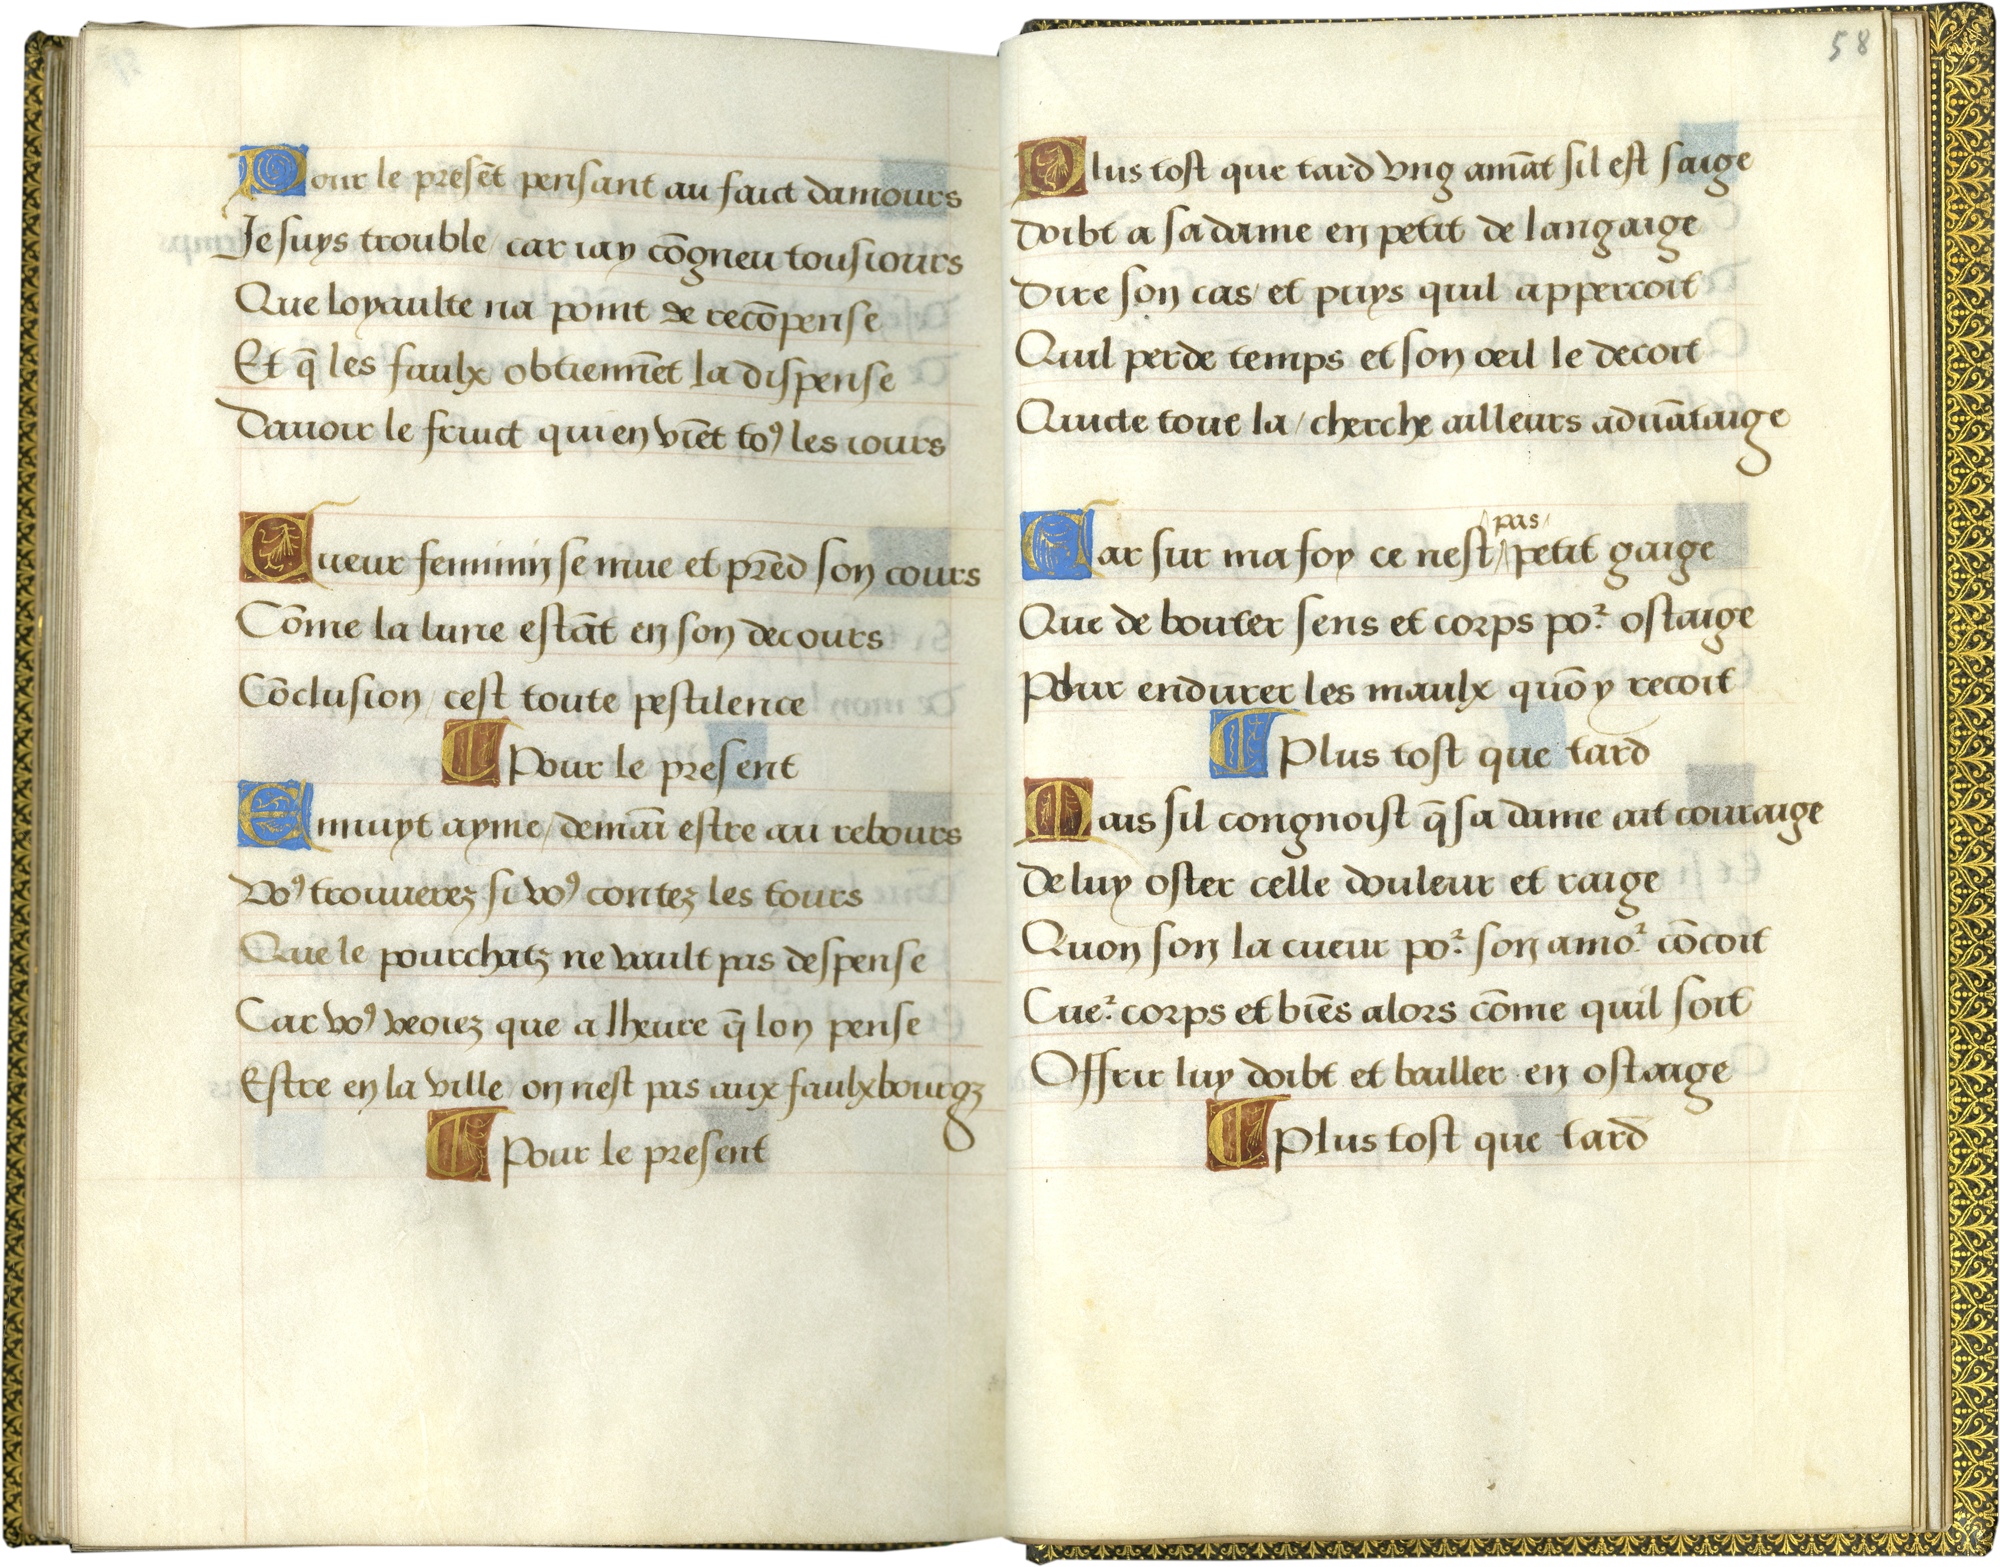 Pour le presẽt pensant au faict damours
Je suys trouble / car iay cõgneu tousiours
Que loyaulte na point de recõpense
Et q̃ les faulx obtiennẽt la dispense
Dauoir le fruict qui en viẽt toꝰ les iours
Cueur feminin se mue et prẽd son cours
Cõme la lune estãt en son decours
Cõclusion / cest toute pestilence
Pour le present
En nuyt ayme / demaĩ estre au rebours
Voꝰ trouuerez si voꝰ contez les tours
Que le pourchatz ne vault pas despense
Car voꝰ veoiez que a lheure q̃ lon pense
Estre en la ville / on nest pas aux faulxbourgz
Pour le present
58
Plus tost que tard vng amãt sil est saige
Doibt a sa dame en petit de langaige
Dire son cas / et puys quil appercoit
Quil perde temps et son oeil le decoit
Quicte tout la / cherche ailleurs aduãtaige
Car sur ma foy ce nest / pas / petit gaige
Que de bouter sens et corps poᷣ ostaige
Pour endurer les maulx quõ y recoit
Plus tost que tard
Mais sil congnoist q̃ sa dame ait couraige
De luy oster celle douleur et raige
Quon son la cueur poᷣ son amoᷣ cõcoit
Cueᷣ corps et biẽs alors cõme quil soit
Offrir luy doibt et bailler en ostaige
Plus tost que tard